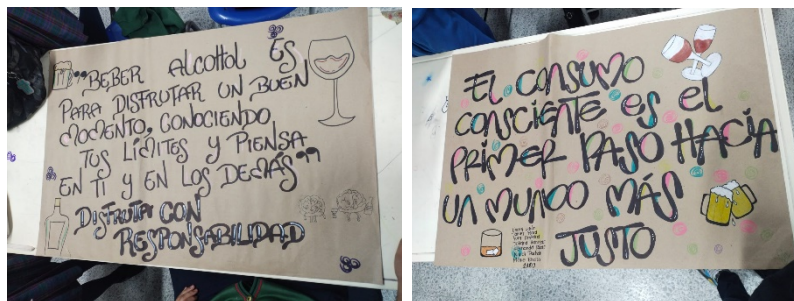 "BEBER ALCOHOL ES
PARA DISFRUTAR UN BUEN
MOMENTO, CONOCIENDO
TUS LÍMITES Y PIENSA
EN TI Y EN LOS DEMÁS"
DISFRUTA CON
RESPONSABILIDAD
EL CONSUMO
CONSCIENTE es el
PRIMER PASO HACIA
UN MUNDO MÁS
JUSTO